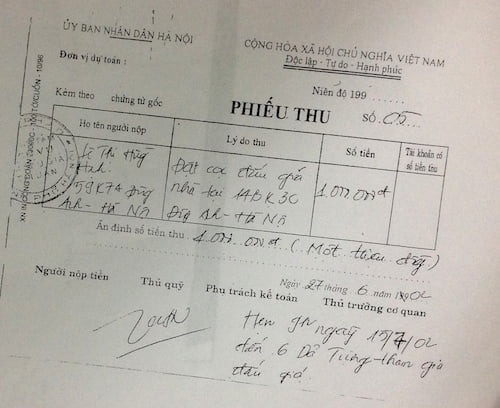 ỦY BAN NHÂN DÂN HÀ NỘI
CỘNG HÒA XÃ HỘI CHỦ NGHĨA VIỆT NAM
Độc lập - Tự do - Hạnh phúc
Đơn vị dự toán :
Niên độ 199
Kèm theo chứng từ gốc
PHIẾU THU SỐ 05
Họ tên người nộp
Lý do thu
Số tiền
Tài khoản có số tiền thu
Lê Thị
59K7A
Anh - Hà Nội
Đặt cọc đấu giá
nhà tại 14B K3C
Anh - Hà Nội
1.000.000đ
Ấn định số tiền thu 1.000.000đ (Một triệu đồng)
Ngày 27 tháng 6 năm 1902
Người nộp tiền
Thủ quỹ
Phụ trách kế toán
Thủ trưởng cơ quan
Hẹn 9h ngày 15/7/02
đến 6 Dã Tượng - tham gia
đấu giá.